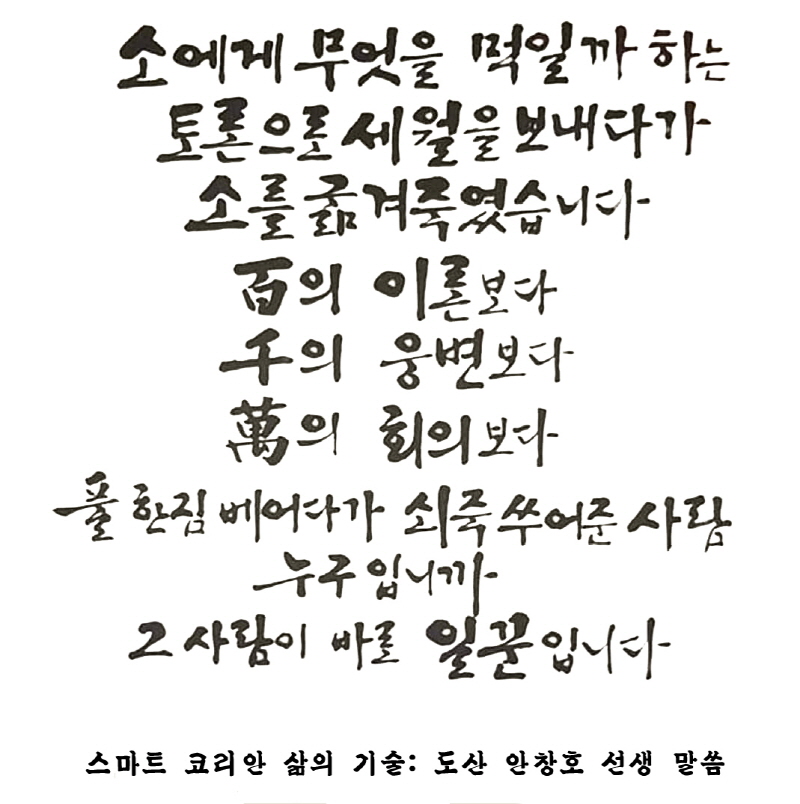 소에게 무엇을 먹일까 하는
토론으로 세월을 보내다가
소를 굶겨죽였습니다
百의 이론보다
千의 웅변보다
萬의 회의보다
풀 한짐 베어다가 쇠죽 쑤어준 사람
누구입니까
그 사람이 바로 일꾼입니다
스마트 코리안 삶의 기술: 도산 안창호 선생 말씀